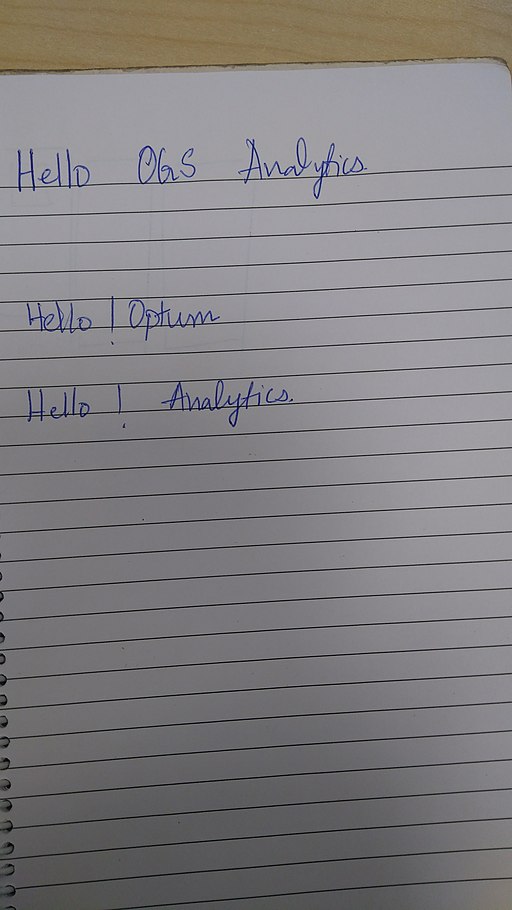 Hello OGS Analytics.
Hello ! Optum
Hello ! Analytics.